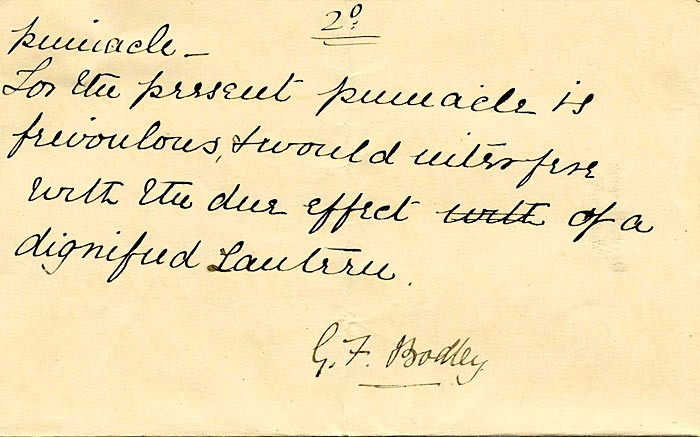 2º:
pinnacle –
For the present pinnacle is
frivoulous, & would interfere
with the due effect with of a
dignified Lantern.
G. F. Bodley